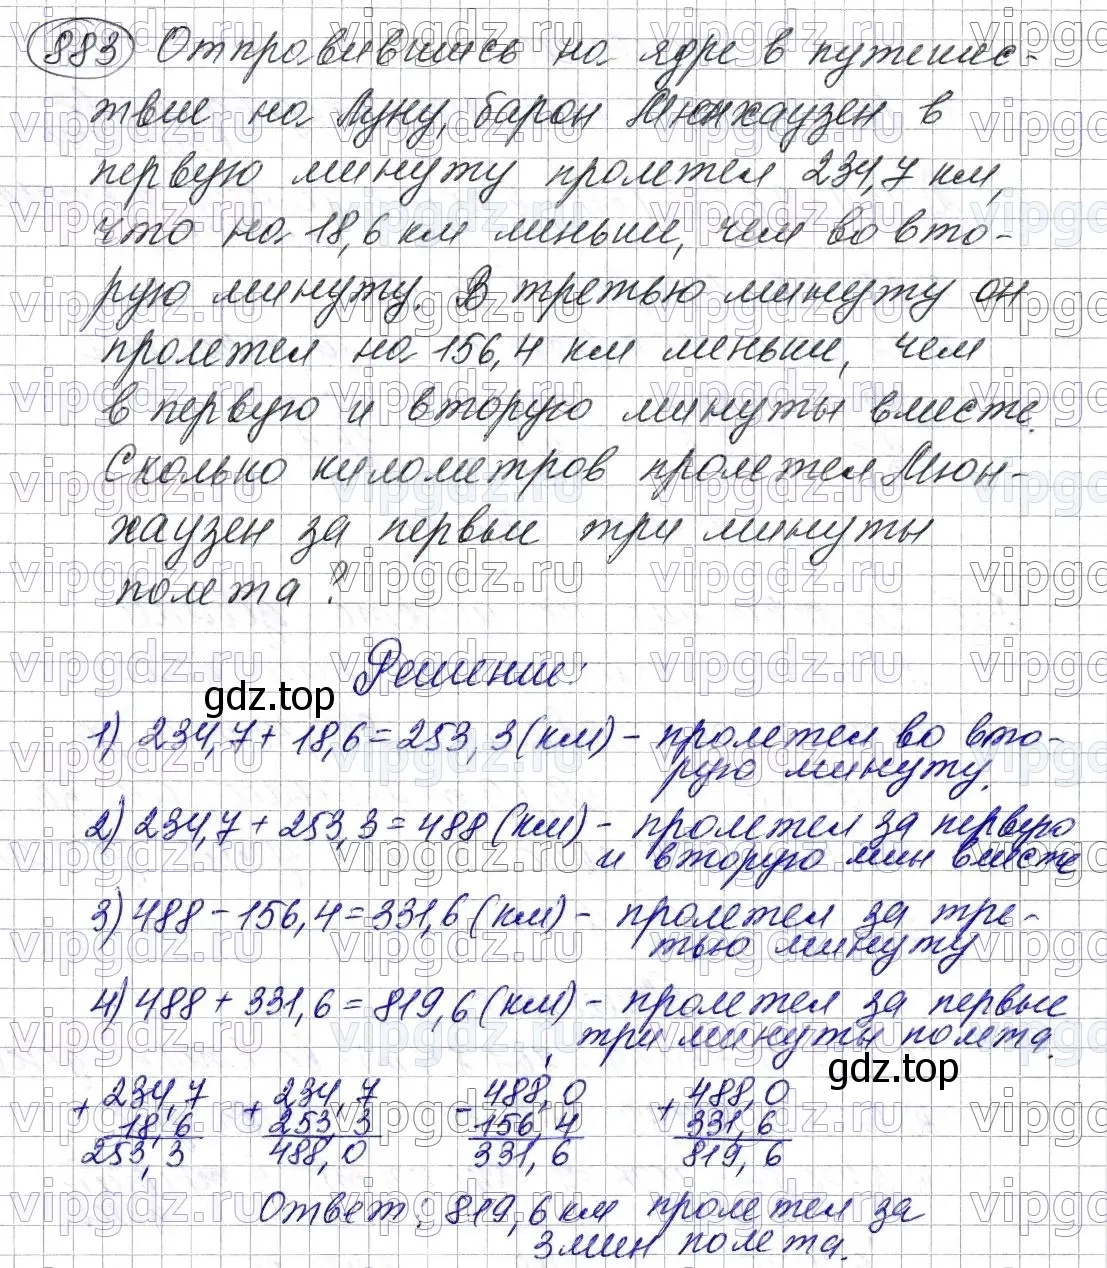 883 Отправившись на ядре в путешес-
твие на Луну, барон Мюнхаузен в
первую минуту пролетел 234,7 км,
что на 18,6 км меньше, чем во вто-
рую минуту. В третью минуту он
пролетел на 156,4 км меньше, чем
в первую и вторую минуты вместе.
Сколько километров пролетел Мюн-
хаузен за первые три минуты
полета?
Решение:
gdz.top
1) 234,7 + 18,6 = 253,3 (км) - пролетел во вто-
рую минуту.
2) 234,7 + 253,3 = 488 (км) - пролетел за первую
и вторую мин вместе
3) 488 - 156,4 = 331,6 (км) - пролетел за тре-
тью минуту
4) 488 + 331,6 = 819,6 (км) - пролетел за первые
три минуты полета.
gdz.top
+ 234,7 + 234,7 - 488,0 + 488,0
18,6 253,3 156,4 331,6
253,3 488,0 331,6 819,6
Ответ: 819,6 км пролетел за
3 мин полета.